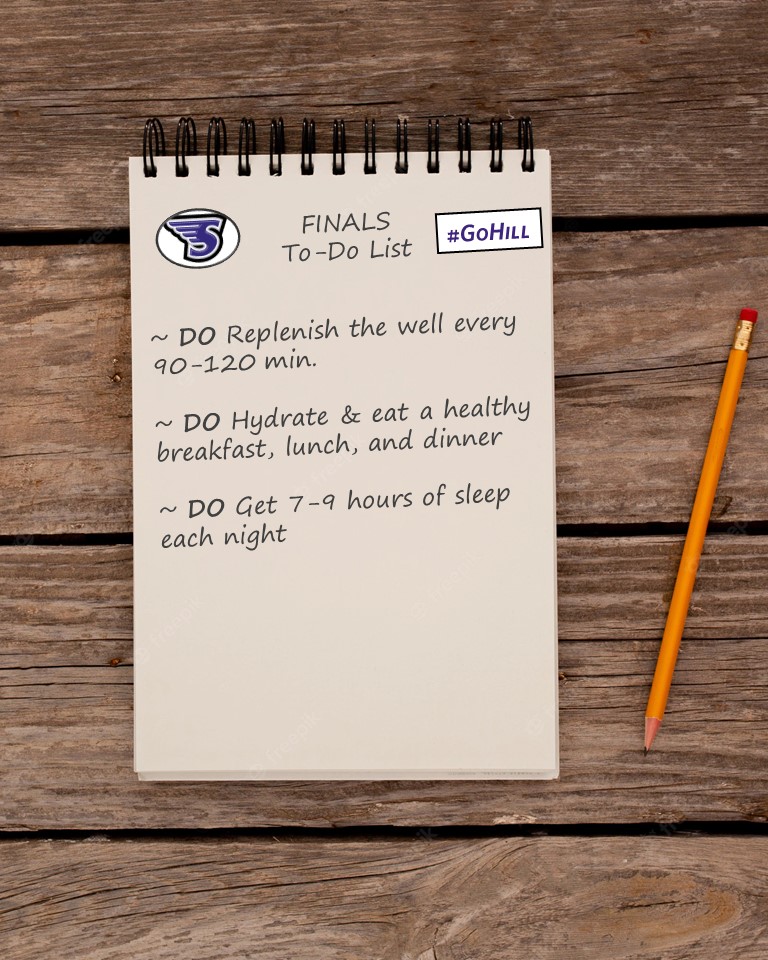 FINALS
To-Do List
#GoHill
~ DO Replenish the well every
90-120 min.
~ DO Hydrate & eat a healthy
breakfast, lunch, and dinner
~ DO Get 7-9 hours of sleep
each night